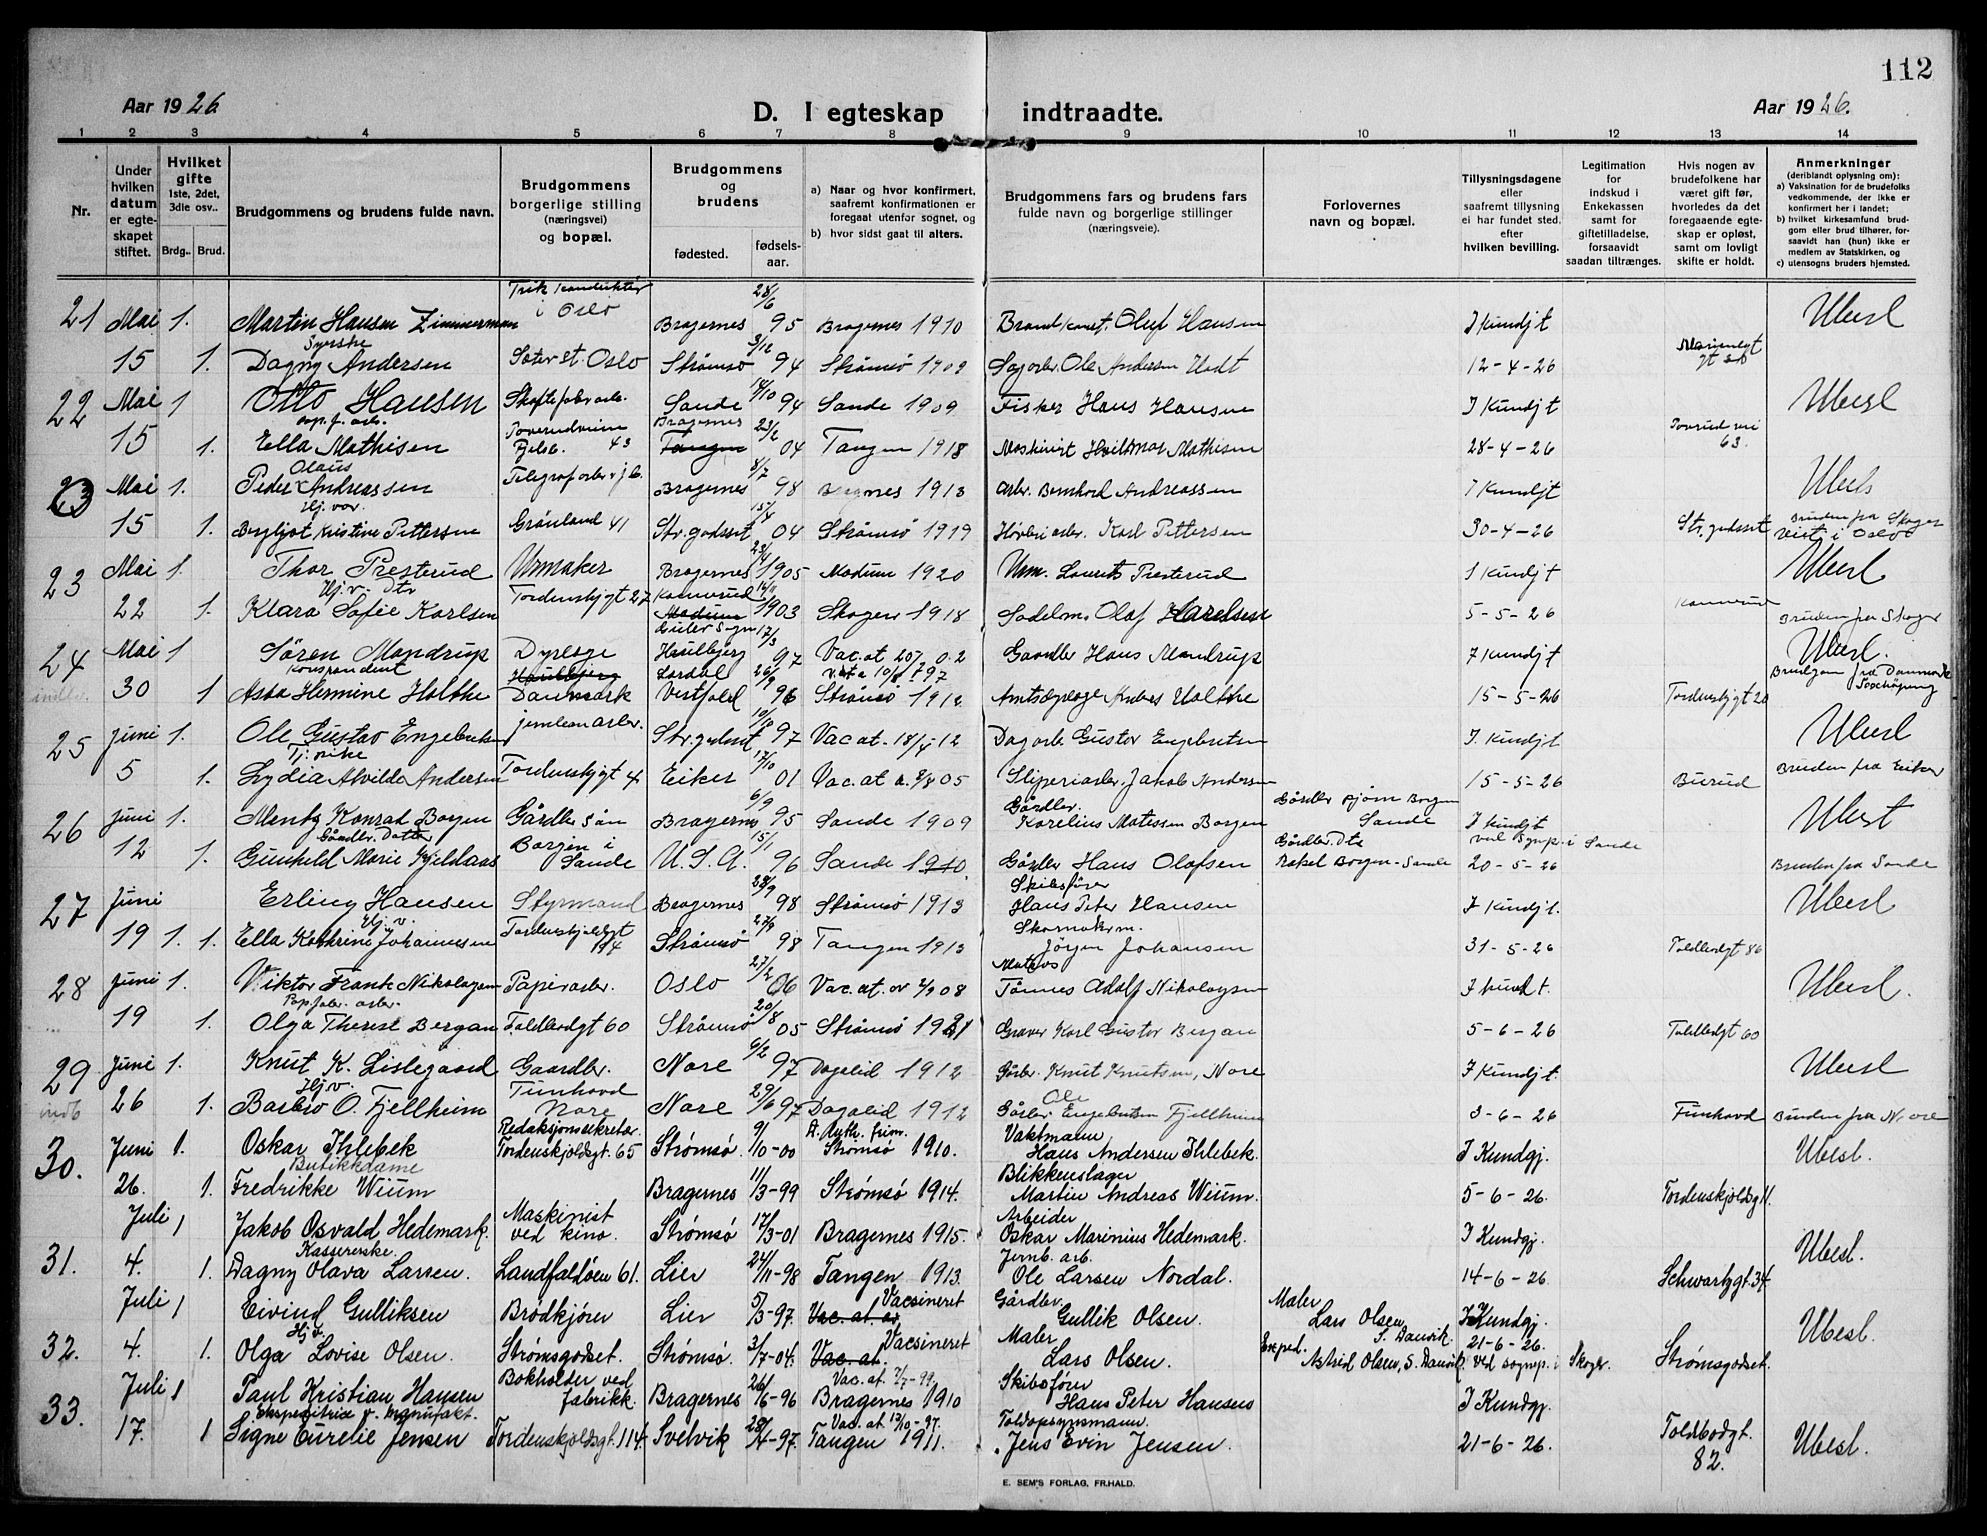 112
Aar 1926.
D. I egteskap indtraadte.
Aar 1926.
1 2 3 4 5 6 7 8 9 10 11 12 13 14
Nr.
Under hvilken datum er egteskapet stiftet.
Hvilket gifte 1ste, 2det, 3die osv..
Brdg.. Brud.
Brudgommens og brudens fulde navn.
Brudgommens borgerlige stilling (næringsvei) og bopæl.
Brudgommens og brudens
fødested. fødselsaar.
a) Naar og hvor konfirmert, saafremt konfirmationen er foregaat utenfor sognet, og
b) hvor sidst gaat til alters.
Brudgommens fars og brudens fars fulde navn og borgerlige stillinger (næringsveie).
Forlovernes navn og bopæl.
Tillysningsdagene eller saafremt tillysning ei har fundet sted, efter hvilken bevilling.
Legitimation for indskud i Enkekassen samt for giftetilladelse, forsaavidt saadan tiltrænges.
Hvis nogen av brudefolkene har været gift før, hvorledes da det foregaaende egteskap er opløst, samt om lovligt skifte er holdt.
Anmerkninger (deriblandt oplysning om):
a) Vaksination for de brudefolks vedkommende, der ikke er konfirmert her i landet;
b) hvilket kirkesamfund brudgom eller brud tilhører, forsaavidt han (hun) ikke er medlem av Statskirken, og
c) utensogns bruders hjemsted.
21 Mai 1. Martin Hansen Zimmerman Trik konduktør i Oslo Bragernes 28/6 95 Bragernes 1910 Oluf Hansen I Kundjt Ubesl
Syerske
15 1. Dagny Andersen Oslo Strømsø 3/12 94 Strømsø 1909 Sagarb. Ole Andersen 12-4-26
22 Mai 1 Otto Hansen Skoftefabr arb. Sande 14/10 94 Sande 1909 Fisker Hans Hansen I Kundjt Ubesl
Pap. f. arb.
15 1. Ella Mathisen 43 Bragernes Tangen 23/2 04 Tangen 1918 Maskinist Hvilthmar Mathisen 28-4-26 63.
23 Mai 1. Peder Olaus Andreassen Telegrafarbr. Bragernes 8/7 98 Bragernes 1913 Arbr. Bernhard Andreassen I Kundjt Ubesl
Hj. vær.
15 1. Bergljot Kristine Pettersen Grønland 41 Str.godset 15/4 04 Strømsø 1919 Karl Pettersen 30-4-26 Str.godset Bruden fra Skoger viet i Oslo
23 Mai 1. Thor Presterud Urmaker Bragernes 23/4 1905 Modum 1920 Urm. Laurits Presterud I Kundjt Ubesl
Hj. v. Dtr
22 1. Klara Sofie Karlsen Tordenskjgt 27 Konnerud 1903 Skoger 1918 Sadelm. Olaf Karelsen 5-5-26 Konnerud Bruden fra Skoger
24 Mai 1 Søren Mandrup Dyrlæge Haulbjerg 17/3 97 Vac. at 20/7 02 Gaardbr Hans Mandrup I Kundjt Ubesl.
Korspondent
30 1 Asta Hermine Holthe Danmark Lardal Vestfold 26/9 96 Strømsø 1912 Amtsdyrlæge Anders Holthe 15-5-26 Tordenskjgt 20 Brudgom fra Danmark
25 Juni 1. Ole Gustav Engebretsen jernbanearbr. Str.godset 10/10 97 Vac at. 18/4-12 Dagarb Gustav Engebretsen I. Kundjt Ubesl
Tj. pike
5 1. Lydia Alvilde Andersen Tordenskjgt 4 Eiker 17/10 01 Vac. at a. 9/8 05 Sliperiarbr. Jakob Andersen 15-5-26 Burud Bruden fra Eiker
26 Juni 1. Mentz Konrad Borgen Gårdbr søn Bragernes 6/9 95 Sande 1909 Gårdbr. Karelius Matessen Borgen Gårdbr Bjørn Borgen Sande I Kundjt Ubesl
Gårdbr. Datter
12 1. Gunhild Marie Kjeldaas Borgen i Sande U.S.A. 15/1 96 Sande 1910. Gårdbr Hans Olafsen Gårdbr. Dtr Rakel Borgen - Sande ved Sognep. i Sande 20-5-26 Bruden fra Sande
27 Juni Erling Hansen Styrmand Bragernes 28/9 98 Strømsø 1913 Skibsfører Hans Peter Hansen I Kundjt. Ubesl
Hj. v.
19 1. 1. Ella Kathrine Johannesen Tordenskjoldgt 114 Strømsø 27/9 98 Tangen 1913 Skomakerm. Jørgen Johansen 31-5-26 Toldbodgt 86
28 Juni 1. Viktor Frank Nikolaysen Papirarbr. Oslo 27/2 06 Vac. at. 08 Matros Tønnes Adolf Nikolaysen I kundt. Ubesl.
Pap.fabr. arbr.
19 1. Olga Therese Bergan Toldbodgt 60 Strømsø 20/8 05 Strømsø 1921 Graver Karl Gustav Bergan 5-6-26 Toldbodgt 60
29 Juni 1. Knut K. Lislegaard Gaardbr. Nore 6/2 97 Dagalid 1912 Gårbr. Knut Knutsen, Nore I Kundjt. Ubesl
Hj v.
26 1. Barbro O. Fjellheim Tunhovd Nore Nore 29/6 97 Dagalid 1912 Gårbr Ole Engebretsen Fjellheim 3-6-26 Tunhovd Bruden fra Nore
30. Juni 1. Oskar Ihlebek Redaksjonssekretær. Tordenskjoldsgt. 65 Strømsø 9/10-00 Strømsø 1910. Vaktmann Hans Andersen Ihlebek. I Kundgj. Ubesl.
Butikkdame
26. 1. Fredrikke Wium Bragernes 11/3-99 Strømsø 1914. Blikkenslager Martin Andreas Wium. 5-6-26. Tordenskjoldsgt
Juli 1 Jakob Osvald Hedemark. Maskinist ved kino. Strømsø 17/3-01 Bragernes 1915. Arbeider Oskar Marinius Hedemark. I Kundgj.
Kassererske.
31. 4. 1. Dagny Olava Larsen. Landfaldøen 61. Lier 24/11-98 Tangen 1913. Jernb. arb. Ole Larsen Nordal. 14-6-26. Schwartzgt. 34. Ubesl.
Juli 1 Eivind Gulliksen Brødkjører Lier 5/3-97. Vacsineret Vac. at. av Gårdbr. Gullik Olsen. Maler Lars Olsen, S. Danvik. I Kundgj.
Hj v.
32. 4. 1. Olga Lovise Olsen. Strømsgodset. Strømsø. 3/7-04. Vacsineret Vac. at. Maler Lars Olsen. Exped. Astrid Olsen, S. Danvik. 21-6-26. ved sognep. i Skoger. Strømsgodset. Ubesl.
Juli 1 Paul Kristian Hansen Bokholder ved fabrikk. Bragernes 26/6-96 Vac. at 7/7-99 Bragernes 1910 Skibsfører Hans Peter Hansen I Kundgj.
Ekspeditrise v. manufakt.
33. 17. 1 Signe Eurelie Jensen Tordenskjoldsgt. 114. Svelvik 28/4-97. Vac. at 13/10-97. Tangen 1911. Toldopsynsmann. Jens Evin Jensen. 21-6-26. Toldbodgt. 82. Ubesl.
E. SEM'S FORLAG, FR.HALD.